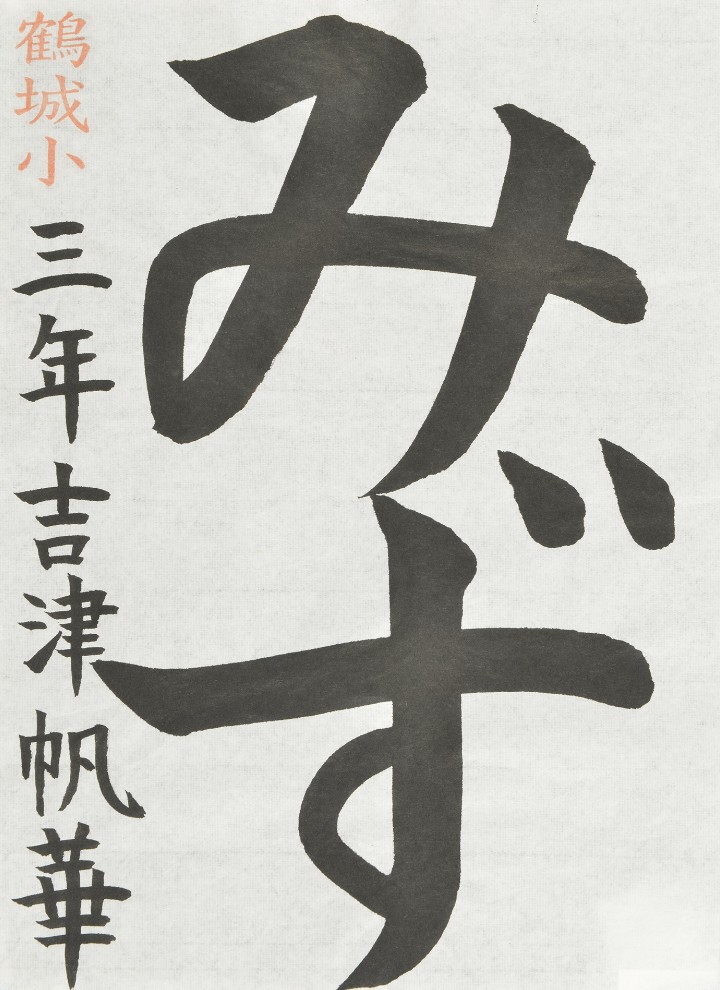 みず
鶴城小 三年 吉津帆華